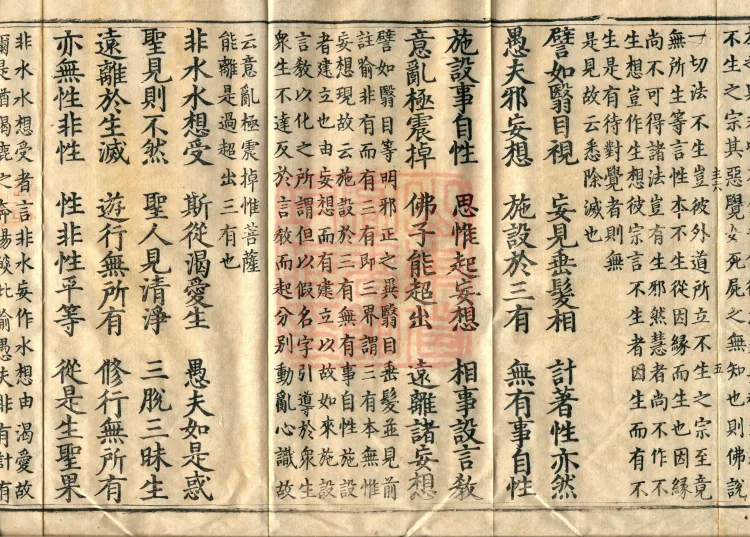 不生之宗其惡覺如死屍之無知也則佛說
一切法不生豈彼外道所立不生之宗至竟
無所生等言性本不生從因緣而生也因緣
尚不可得諸法豈有生邪然慧者尚不作不
生想豈作生想彼宗言不生者因生而有不
生是有待對覺者則無
是見故云悉除滅也
譬如翳目視 妄見垂髮相 計著性亦然
愚夫邪妄想 施設於三有 無有事自性
施設事自性 思惟起妄想 相事設言教
意亂極震掉 佛子能超出 遠離諸妄想
譬如翳目等明邪正之異翳目垂髮並見前
註喻非有而有二有即三界謂三有本無惟
妄想現故云施設於三有無有事自性施設
者建立也由妄想而有建立以故如來施設
言教以化之所謂但以假名字引導於衆生
衆生不達反於言教而起分別動亂心識故
云意亂極震掉惟菩薩
能離是過超出三有也
非水水想受 斯從渴愛生 愚夫如是惑
聖見則不然 聖人見清淨 三脫三昧生
遠離於生滅 遊行無所有 修行無所有
亦無性非性 性非性平等 從是生聖果
非水水想受者言非水妄作水想由渴愛故
爾是猶渴鹿之奔陽燄比喻愚夫非有計有